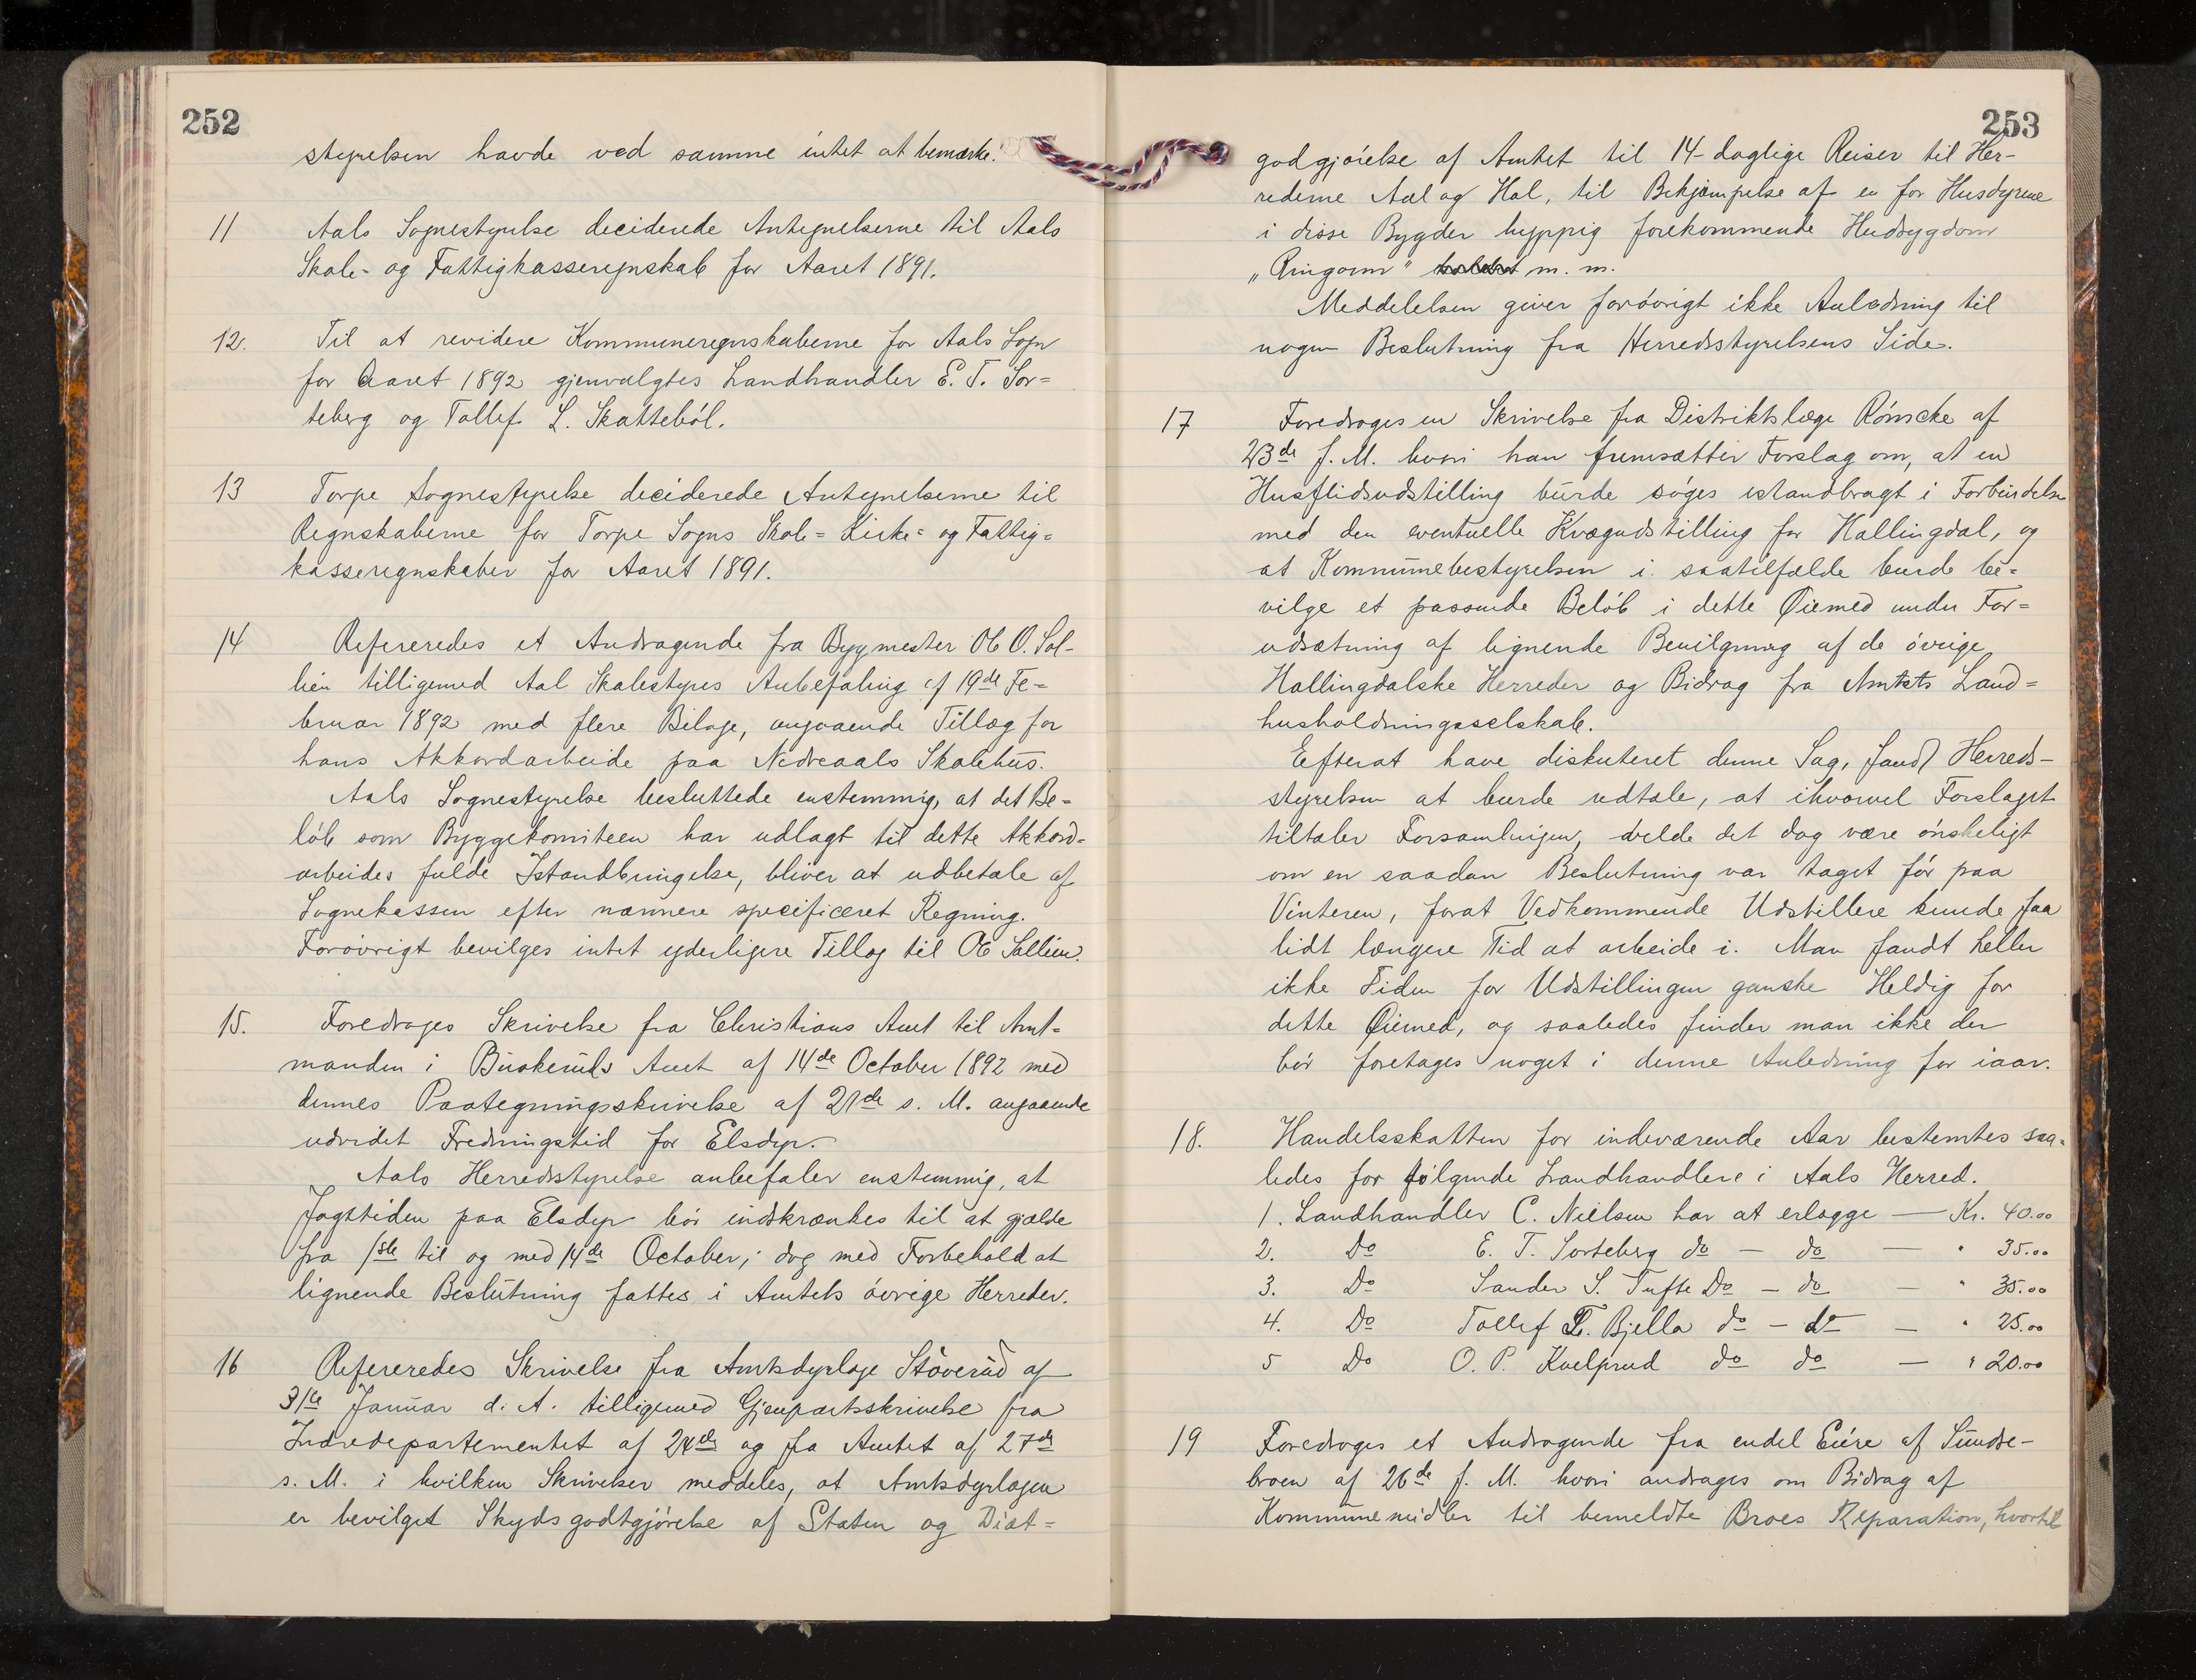 252
styrelsen havde ved samme intet at bemærke.
11 Aals Sognestyrelse deciderede Antegnelserne til Aals
Skole- og Fattigkasseregnskab for Aaret 1891.
12. Til at revidere Kommuneregnskaberne for Aals Sogn
for Aaret 1892 gjenvalgtes Landhandler E. T. Sor=
teberg og Tollef L. Skattebøl.
13 Torpe Sognestyrelse deciderede Antegnelserne til
Regnskaberne for Torpe Sogns Skole= Kirke= og Fattig=
kasseregnskaber for Aaret 1891.
14 Refereredes et Andragende fra Bygmester Ole O. Sol-
lien tilligemed Aal Skolestyres Anbefaling af 19de Fe=
bruar 1892 med flere Bilage, angaaende Tillæg for
hans Akkordarbeide paa Nedreaals Skolehus.
Aals Sognestyrelse besluttede enstemmig, at det Be=
løb som Byggekomiteen har udlagt til dette Akkord=
arbeides fulde Istandbringelse, bliver at udbetale af
Sognekassen efter nærmere specificeret Regning.
Forøvrigt bevilges intet yderligere Tillæg til Ole Sollien.
15. Foredroges Skrivelse fra Christians Amt til Amt=
manden i Buskeruds Amt af 14de October 1892 med
dennes Paategningsskrivelse af 21de s. M. angaaende
udvidet Fredningstid for Elsdyr.
Aals Herredsstyrelse anbefaler enstemmig, at
Jagttiden paa Elsdyr bør indskrænkes til at gjælde
fra 1ste til og med 14de October; dog med Forbehold at
lignende Beslutning fattes i Amtets øvrige Herreder.
16 Refereredes Skrivelse fra Amtsdyrlæge Støverud af
31te Januar d. A. tilligemed Gjenpartsskrivelse fra
Indredepartementet af 24de og fra Amtet af 27de
s. M. i hvilken Skrivelser meddeles, at Amtsdyrlægen
er bevilget Skydsgodtgjørelse af Staten og Diæt=
253
godgjørelse af Amtet til 14-daglige Reiser til Her-
rederne Aal og Hol, til Bekjæmpelse af en for Husdyrene
i disse Bygder hyppig forekommende Hudsygdom
„Ringorm" m. m.
Meddelelsen giver forøvrigt ikke Anledning til
nogen Beslutning fra Herredsstyrelsens Side.
17 Foredroges en Skrivelse fra Distriktslæge Rønscke af
23de f. M. hvori han fremsætter Forslag om, at en
Husflidsudstilling burde søges istandbragt i Forbindelse
med den eventuelle Kvægudstilling for Hallingdal, og
at Kommunebestyrelsen i saatilfælde burde be=
vilge et passende Beløb i dette Øiemed under For=
udsætning af lignende Bevilgning af de øvrige
Hallingdalske Herreder og Bidrag fra Amtets Land=
husholdningsselskab.
Efterat have diskuteret denne Sag, fandt Herreds-
styrelsen at burde udtale, at ihvorvel Forslaget
tiltaler Forsamlingen, vilde det dog være ønskeligt
om en saadan Beslutning var taget før paa
Vinteren, forat Vedkommende Udstillere kunde faa
lidt længere Tid at arbeide i. Man fandt heller
ikke Tiden for Udstillingen ganske Heldig for
dette Øiemed, og saaledes finder man ikke der
bør foretages noget i denne Anledning for iaar.
18. Handelsskatten for indeværende Aar bestemtes saa=
ledes for følgende Landhandlere i Aals Herred.
1. Landhandler C. Nielsen har at erlægge — Kr. 40.00
2. Do E. T. Sorteberg do — do — " 35.00
3. Do Sander S. Tufte Do — do — " 35.00
4. Do Tollef T. Bjella do — do — " 25.00
5 Do O. P. Kvelprud do do — " 20.00
19 Foredroges et Andragende fra endel Eiere af Sundre-
broen af 26de f. M. hvori andrages om Bidrag af
Kommunemidler til bemeldte Broes Reparation, hvortil